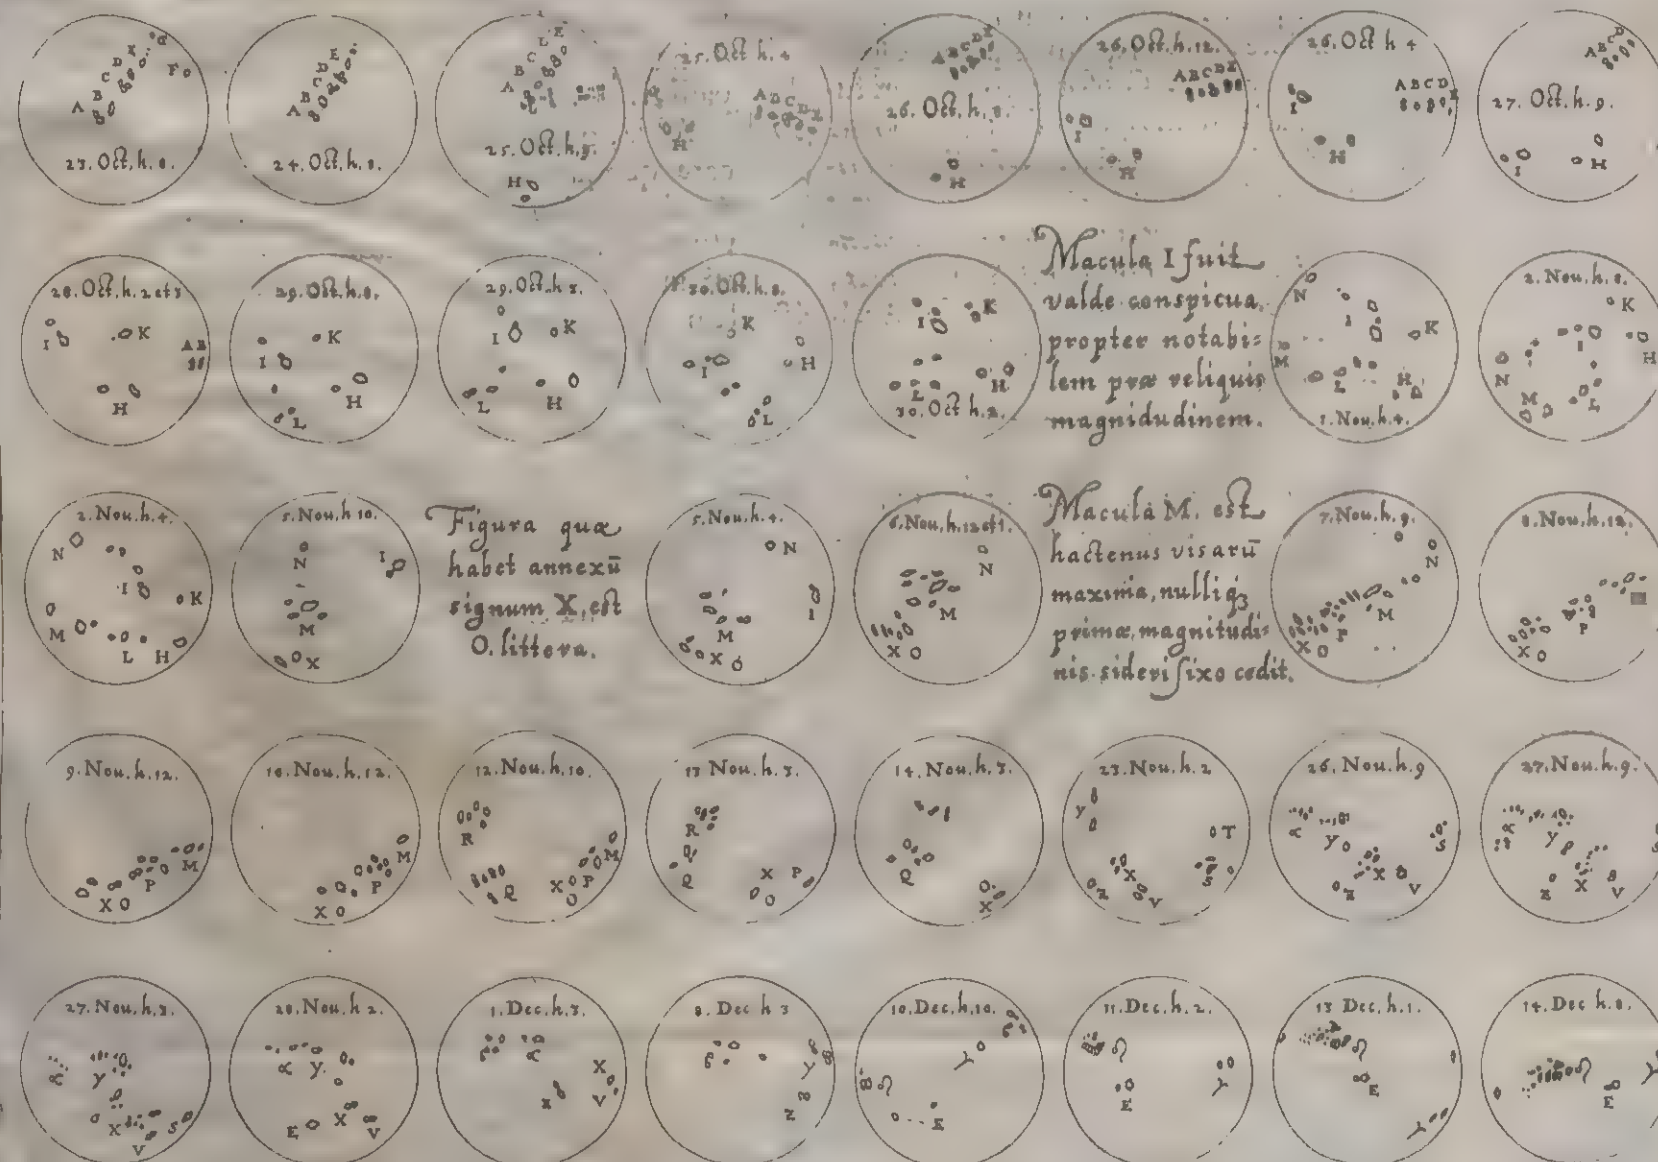 A B C D E F G
23. Oct. h. 8.
A B C D E
24. Oct. h. 8.
A B C L E
25. Oct. h.
H
25. Oct h. 4
A B C D E
H
A B C D E
26. Oct. h. 8.
H
26. Oct. h. 12.
A B C D E
I H
26. Oct h 4
A B C D E
I H
A B C D
27. Oct. h. 9.
I H
28. Oct. h. 2 et 3
I K A B
H
29. Oct. h. 8.
K
I
H
L
29. Oct. h 3.
I K
L H
30. Oct. h. 8.
K
I H
L
I K
L H
30. Oct h. 2.
Macula I fuit
valde conspicua,
propter notabi=
lem præ reliquis
magnidudinem.
N
I K
M
L H
1. Nou. h. 4.
2. Nou. h. 8.
K
I H
N
M L
2. Nou. h. 4.
N
I K
M
L H
5. Nou. h 10.
N I
M
X
Figura quæ
habet annexū
signum X, est
O. littera.
5. Nou. h. 4.
N
I
M
X
6. Nou. h. 12 et 1.
N
M
X O
Macula M. est
hactenus visarū
maxima, nulliq3
primæ, magnitudi=
nis sideri fixo cedit.
7. Nou. h. 9.
N
M
P
X O
8. Nou. h. 12.
P
X O
9. Nou. h. 12.
M
P
X O
10. Nou. h. 12.
M
P
X O
12. Nou. h. 10.
R
M
X P
Q O
13 Nou. h. 3.
R
X P
Q O
14. Nou. h. 3.
Q
X
23. Nou. h. 2
Y T
X S
Z V
26. Nou. h. 9
α Y S
X V
Z
27. Nou. h. 9.
α Y S
Z X V
27. Nou. h. 3.
α Y
X S
V
28. Nou. h 2.
α Y.
E X V
1. Dec. h. 3.
ϐ α
X
Z V
8. Dec h 3
ϐ 8
Y
Z
10. Dec. h. 10.
ϐ
γ
8 ♌
E
11. Dec. h. 2.
♌
γ
E
13 Dec. h. 1.
♌
E
γ
14. Dec h. 8.
♌ γ
E